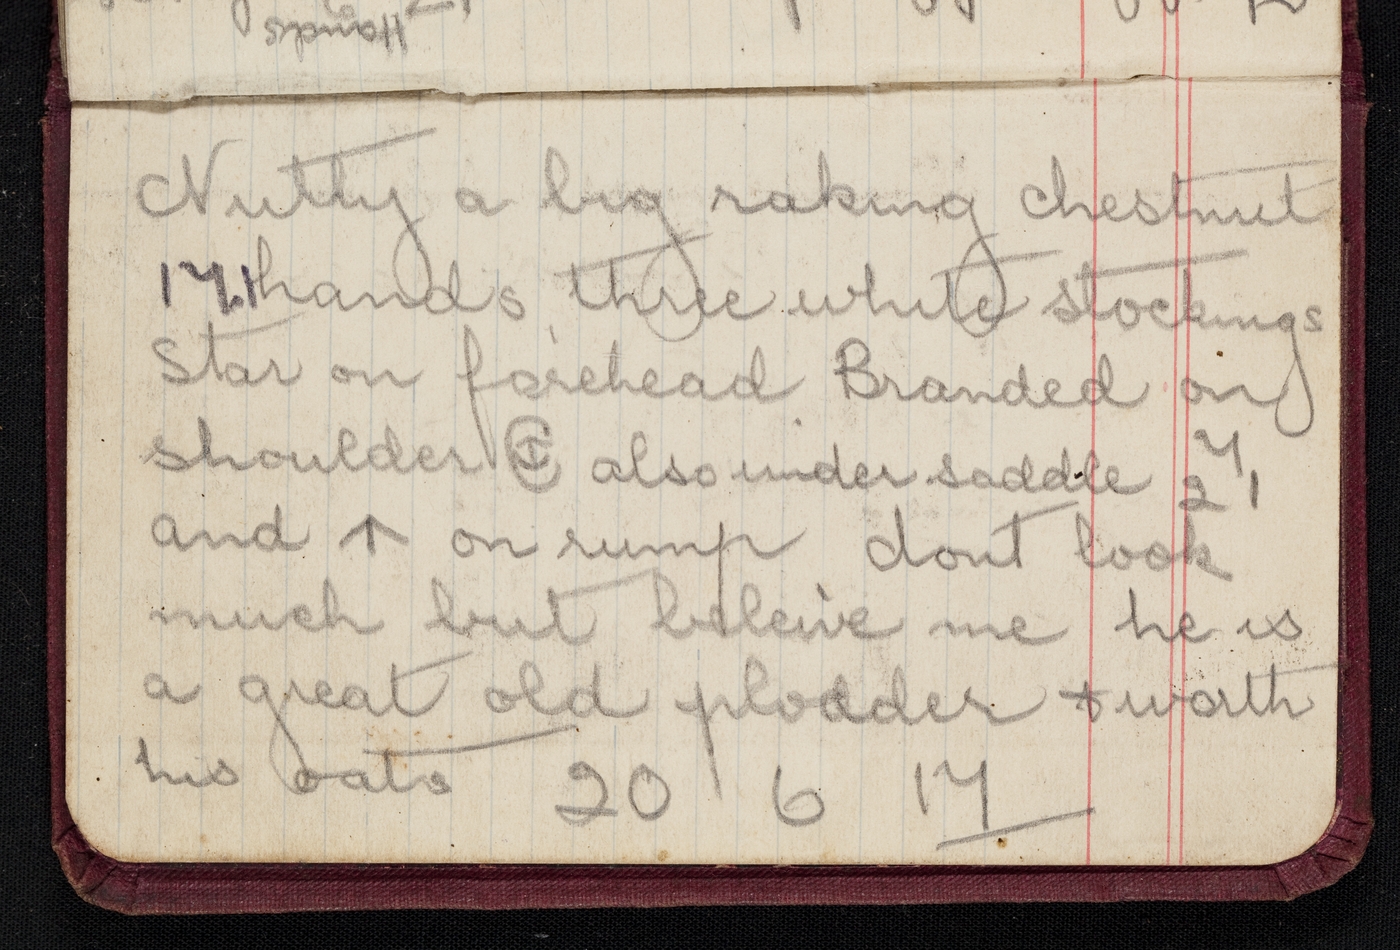 Hands
Nutty a big raking chestnut
17.1 hands, three white stockings
Star on forehead Branded on
shoulder also under saddle 271
and ↑ on rump dont look
much but beleive me he is
a great old plodder & worth
his oats 20 6 17